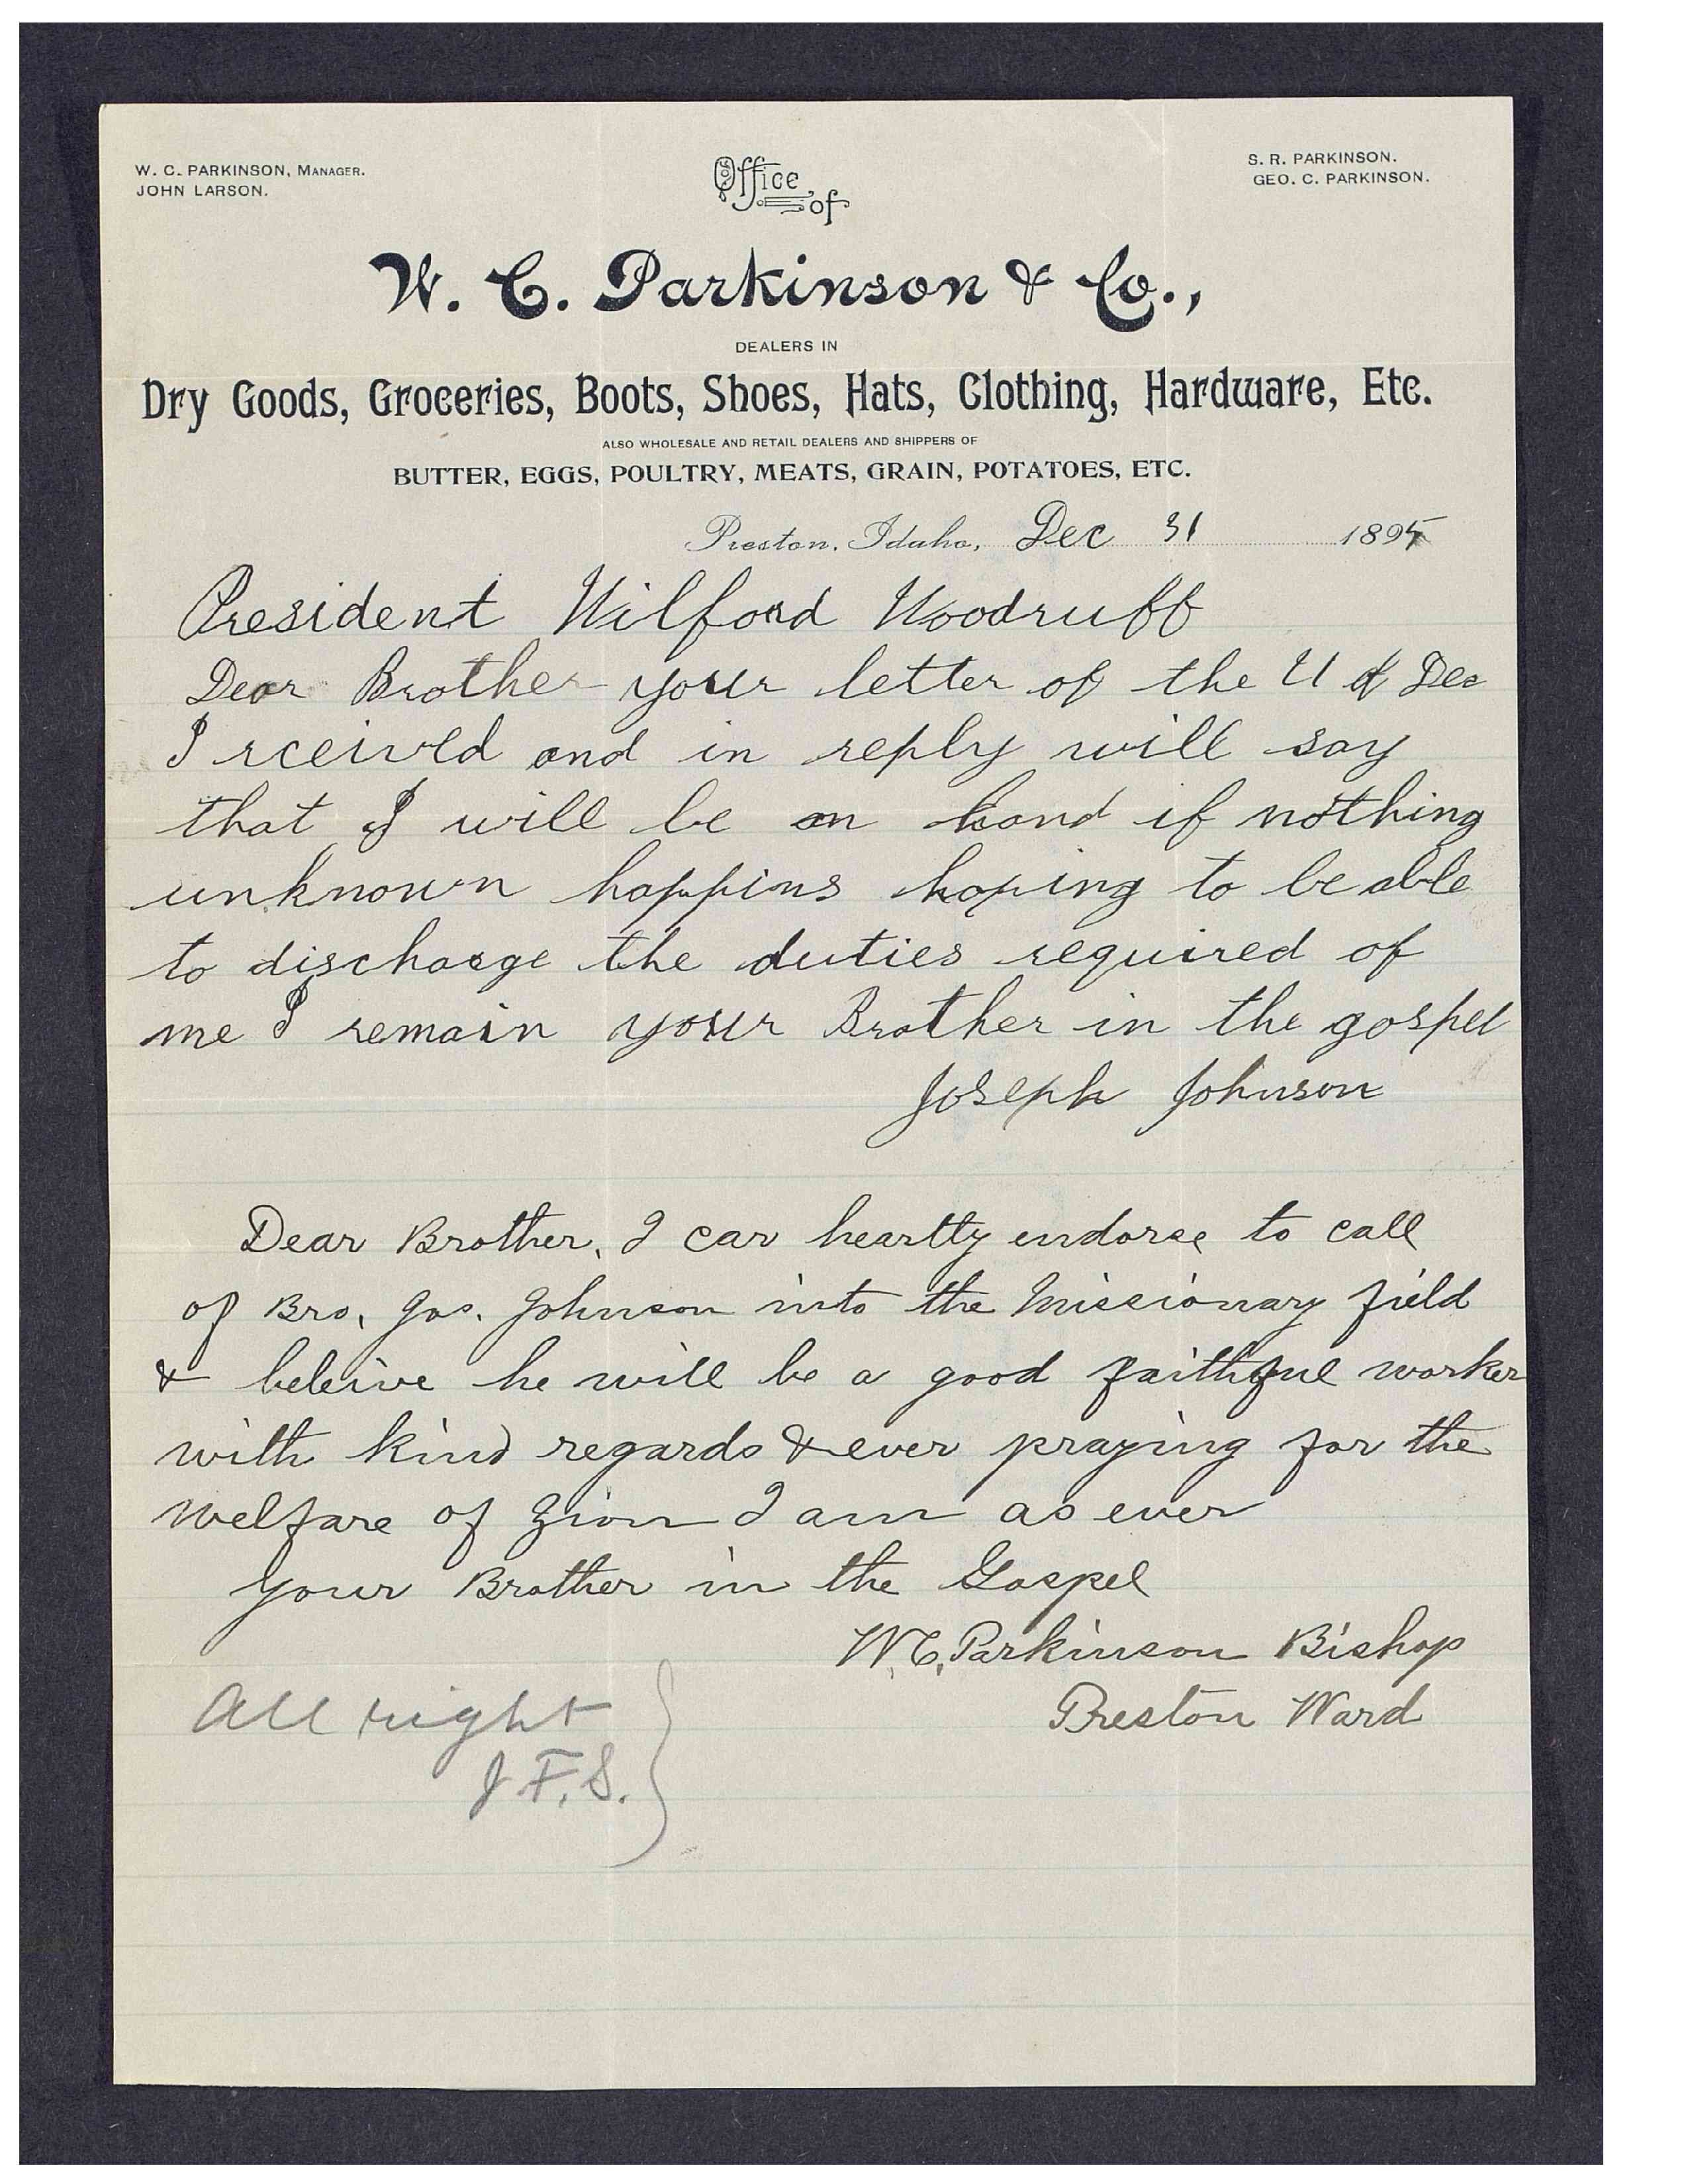 W. C. PARKINSON, MANAGER.
JOHN LARSON.
Office of
S. R. PARKINSON.
GEO. C. PARKINSON.
W. C. Parkinson & Co.,
DEALERS IN
Dry Goods, Groceries, Boots, Shoes, Hats, Clothing, Hardware, Etc.
ALSO WHOLESALE AND RETAIL DEALERS AND SHIPPERS OF
BUTTER, EGGS, POULTRY, MEATS, GRAIN, POTATOES, ETC.
Preston, Idaho, Dec 31 1895
President Wilford Woodruff
Dear Brother your letter of the of Dec
I rceivld and in reply will say
that I will be on hand if nothing
unknown happins hoping to be able
to discharge the duties required of
me I remain your Brother in the gospel
Joseph Johnson
Dear Brother, I can heartly endorse to call
of Bro, Jos. Johnson into the Missionary field
& beleive he will be a good faithful worker
with kind regards & ever praying for the
welfare of Zion I am as ever
Your Brother in the Gospel
W. C. Parkinson Bishop
Preston Ward
All right
J. F. S.